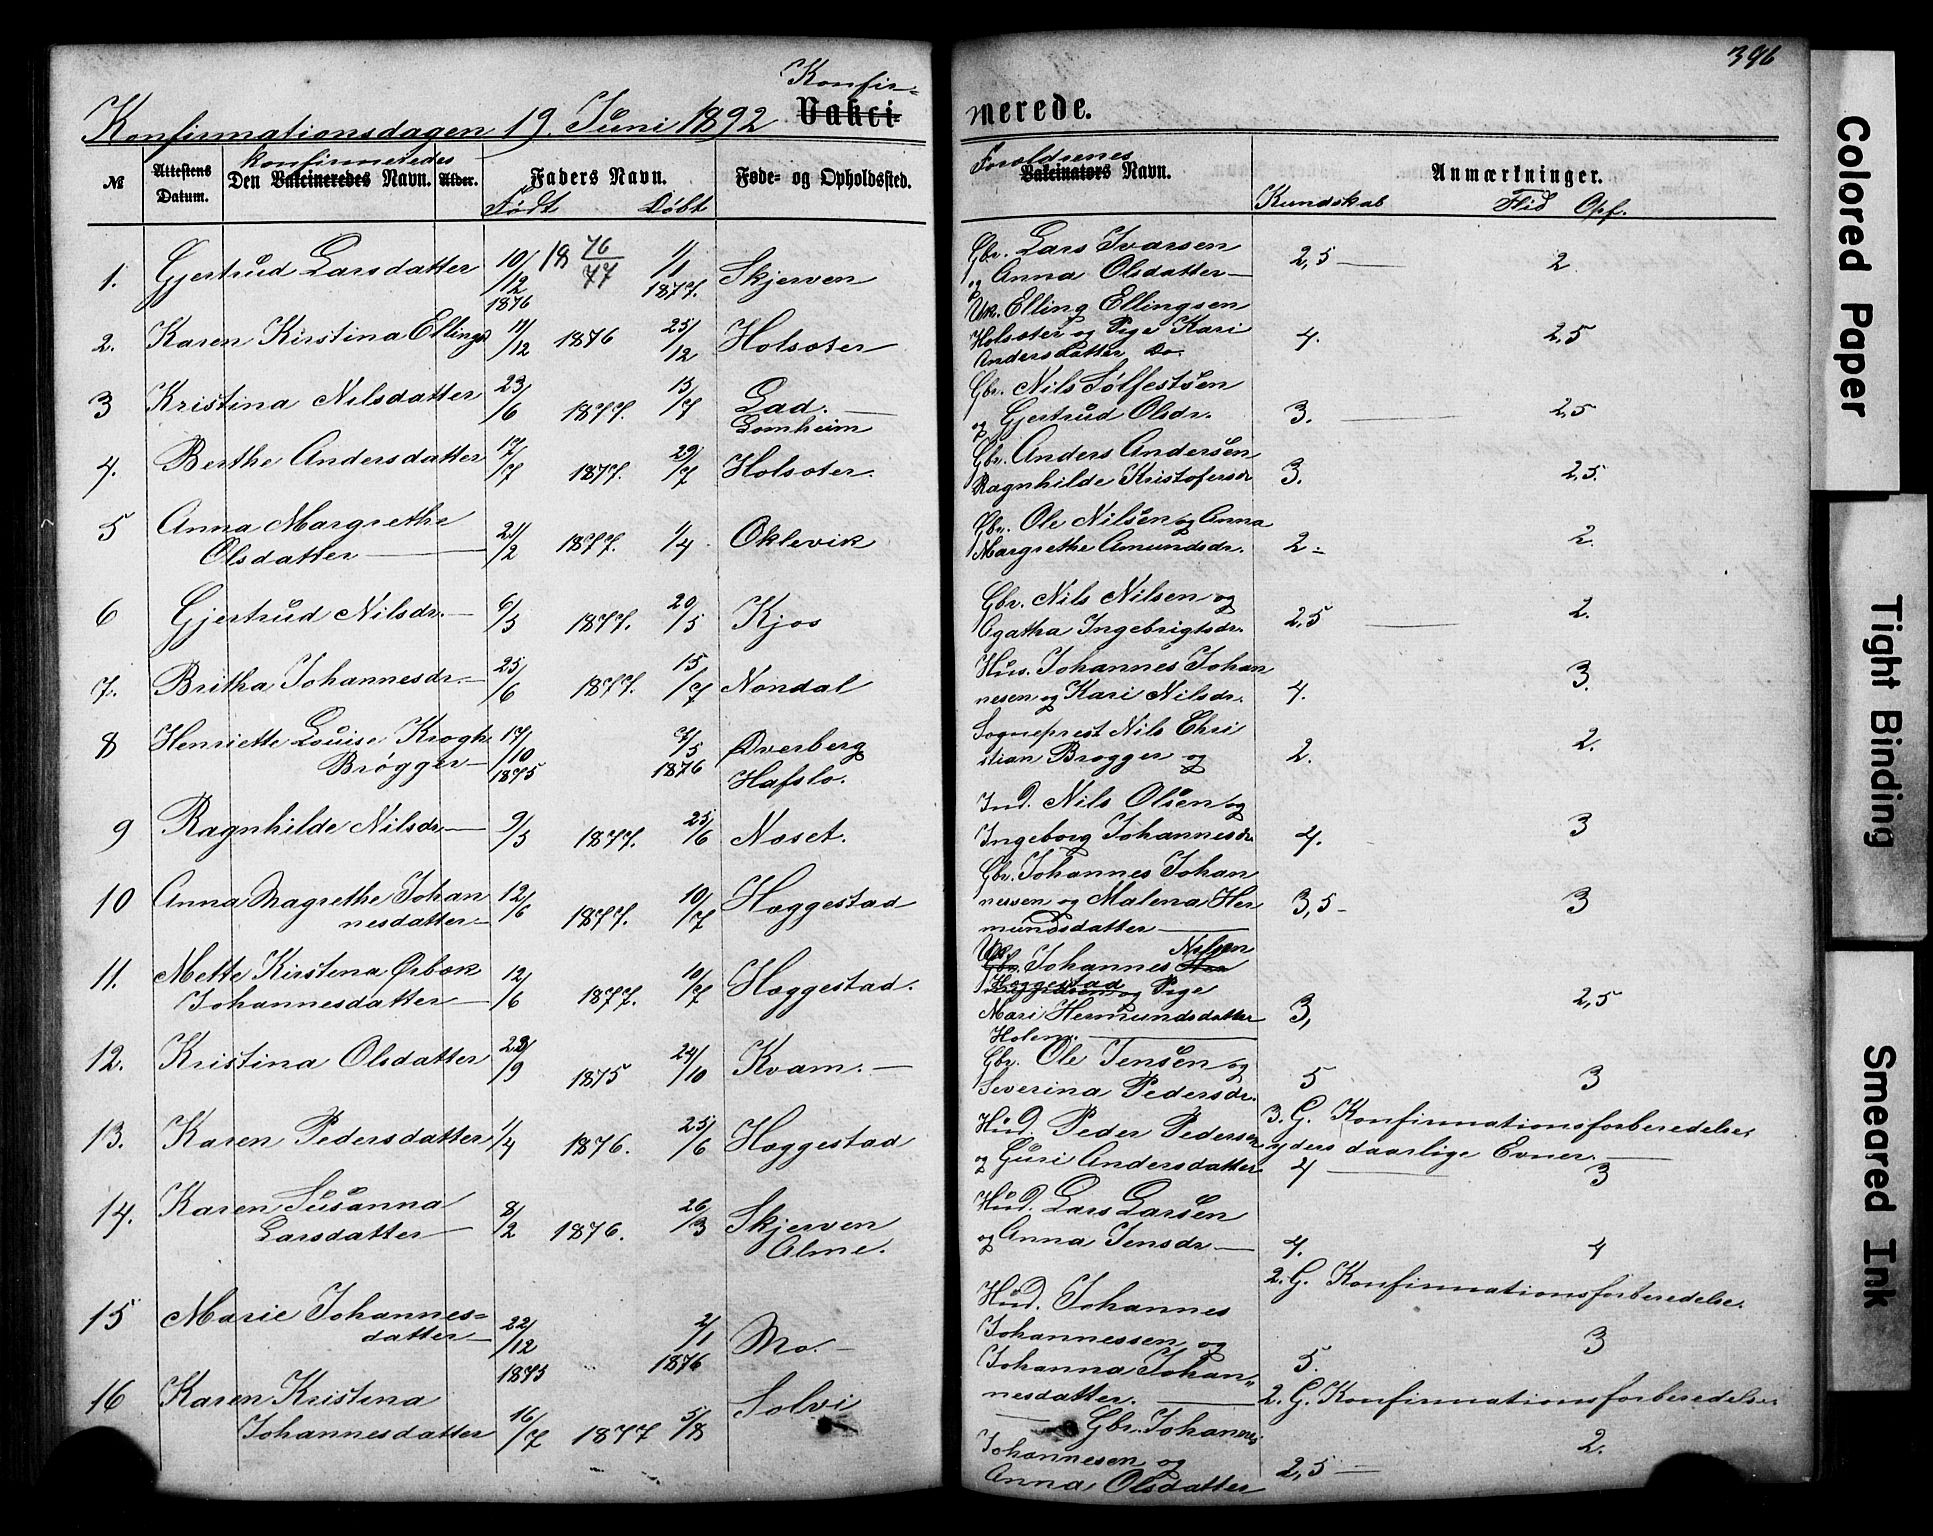 Konfirmationsdagen 19. Juni 1892
Konfir-
Vakci-
№
Attestens Datum.
konfirmeredes
Den Vakcineredes Navn.
Alder.
Faders Navn.
Født Döbt
Føde- og Opholdssted.
1. Gjertrud Larsdatter 10/12 1876 18 76/77 1/1 1877. Skjerven
2. Karen Kirstina Ellings 11/12 1876 25/12 Holsæter
3 Kristina Nilsdatter 23/6 1877. 15/7 Lad.
Lomheim
4. Berthe Andersdatter 17/7 1877. 29/7 Holsæter.
5 Anna Margrethe
Olsdatter 21/2 1877. 1/4 Oklevik
6 Gjertrud Nilsdr. 6/5 1877. 20/5 Kjos
7. Britha Johannesdr. 25/6 1877. 15/7 Nondal
8 Henriette Louise Krogh
Brøgger 17/10 1875 7/5 1876 Øverberg
Hafslo.
9 Ragnhilde Nilsdr. 9/5 1877. 25/6 Næset.
10 Anna Magrethe Johan
nesdatter 12/6 1877. 10/7 Hæggestad
11. Mette Kirstina Ørbæk
Johannesdatter 12/6 1877. 10/7 Hæggestad.
12. Kristina Olsdatter /9 1875 24/10 Kvam.
13. Karen Pedersdatter 1/4 1876. 25/6 Hæggestad
14. Karen Susanna
Larsdatter 8/2 1876. 26/3 Skjerven
Alme.
15 Marie Johannes=
datter 22/12 1875 2/1 1876 Mo.
16 Karen Kristina
Johannesdatter 16/7 1877 5/8 Solvi
396
merede.
Forældrenes
Vakcinators Navn.
Anmærkninger.
Kundskab Flid Opf.
Gbr. Lars Ivarsen
og Anna Olsdatter 2,5 2
Uk. Elling Ellingsen
Holsæter og Pige Kari
Andersdatter Do. 4. 2,5
Gbr. Nils Sølfestsen
og Gjertrud Olsdr. 3. 2,5
Gbr. Anders Andersen
Ragnhilde Kristofersdr 3. 2,5.
Gbr. Ole Nilsen og Anna
Margrethe Amundsdr. 2 2.
Gbr. Nils Nilsen og
Agatha Ingebrigtsdr. 2,5 2.
Hus. Johannes Johan
nesen og Kari Nilsdr. 4. 3.
Sogneprest Nils Chri
stian Brøgger og 2. 2.
Ind. Nils Olsen og
Ingeborg Johannesdr. 4. 3
Gbr. Johannes Johan
nessen og Malena Her
mundsdatter 3,5 3
Uk. Johannes Nilsen
Hæggestad og Pige
Mari Hermundsdatter 3, 2,5
Holem.
Gbr. Ole Jensen og
Severina Pedersdr. 5 3
Hud. Peder Pedersen 3. G. Konfirmationsforberedelse
og Guri Andersdatter 4 3
yders daarlige Evner.
Hud. Lars Larsen
og Anna Jensdr. 4. 4
2. G. Konfirmationsforberedelse.
Hud. Johannes
Johannessen og
Johanna Johan"
nesdatter. 5. 3
2. G. Konfirmationsforberedelse
Gbr. Johannes
Johannesen og
Anna Olsdatter 2,5 2.
Colored Paper
Tight Binding
Smeared Ink